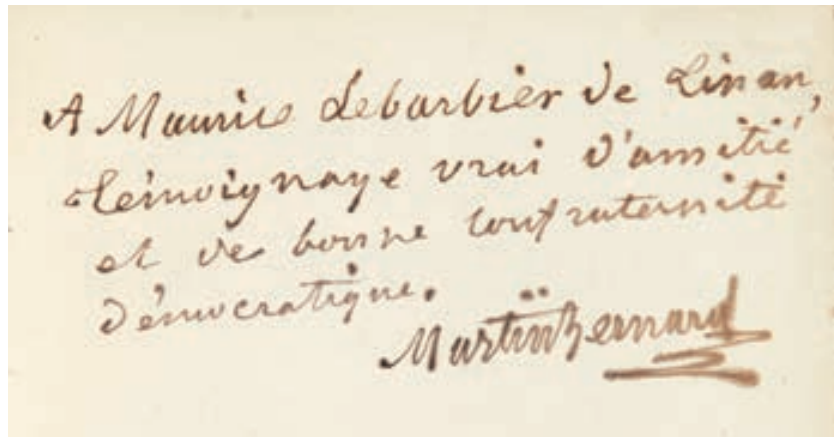 A Maurice Lebarbier de Tinan,
témoignage vrai d'amitié
et de bonne confraternité
démocratique.
Martin Bernard